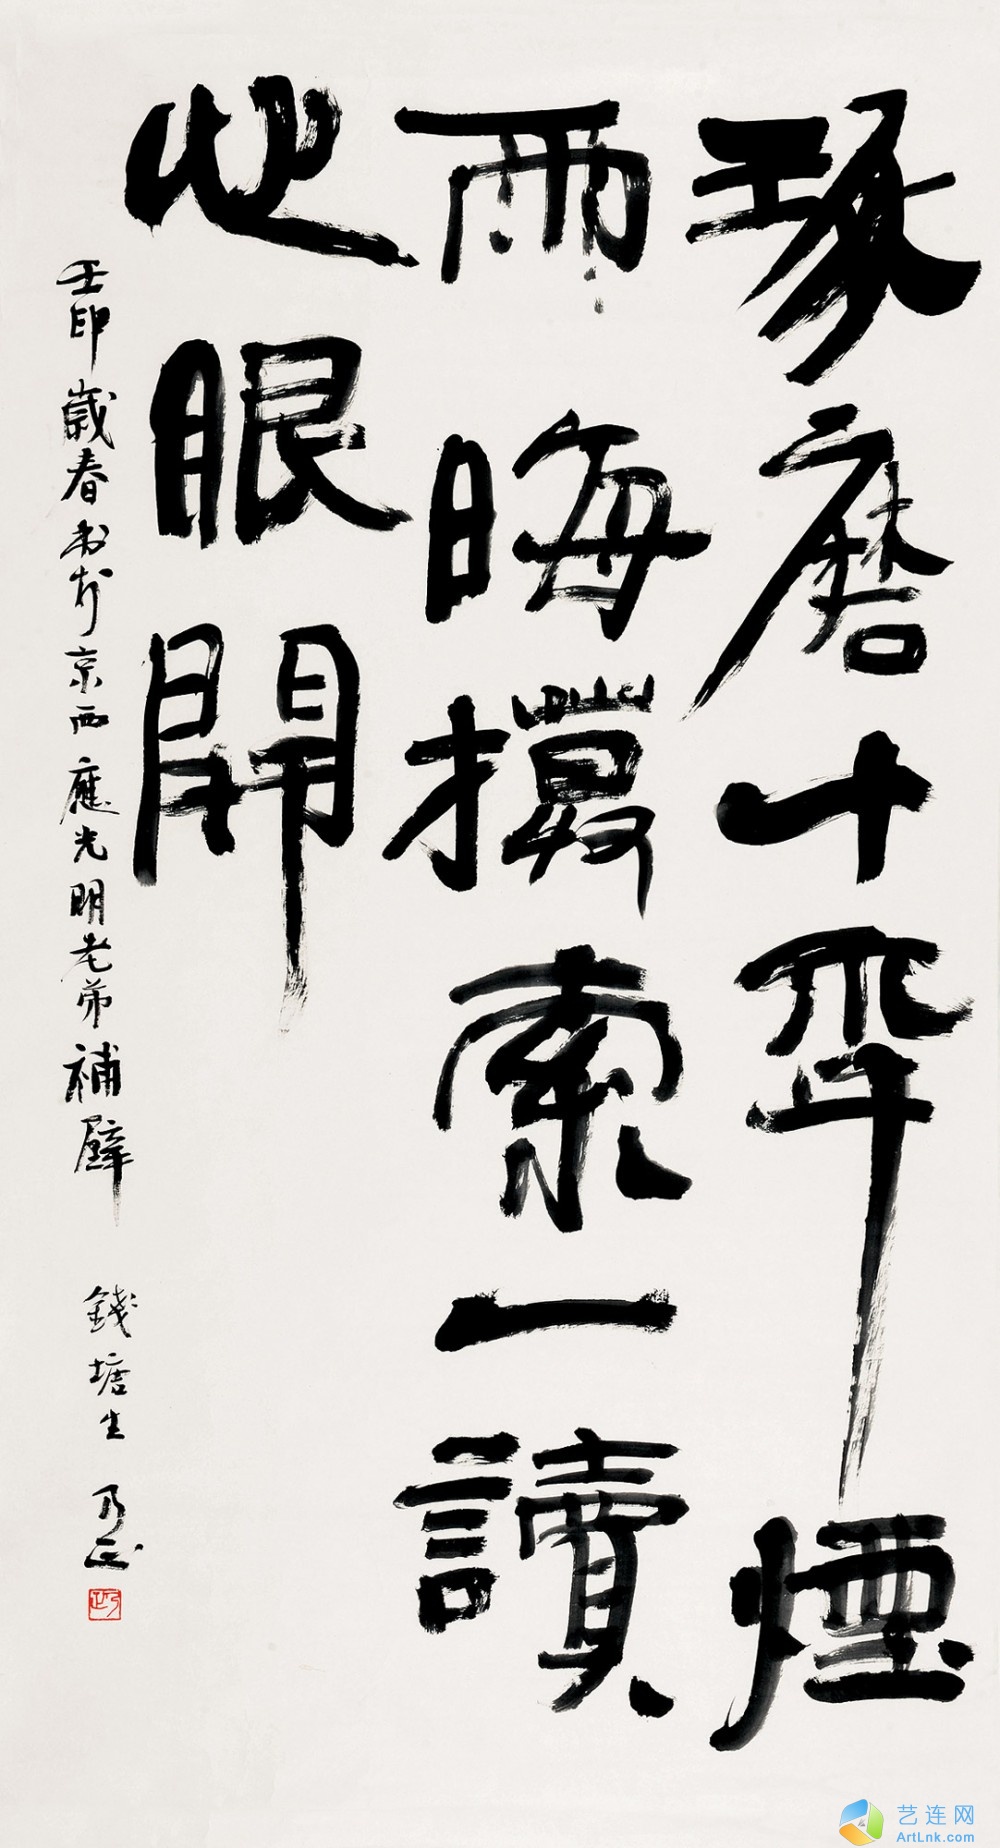 琢磨十年煙
雨晦摸索一讀
心眼開
辛卯歲春书於京西應光明老弟補壁 錢塘生 乃正
乃正
艺连网
ArtLnk.com